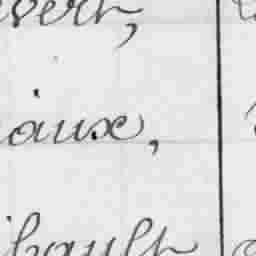 vert,
iaux,
ibault